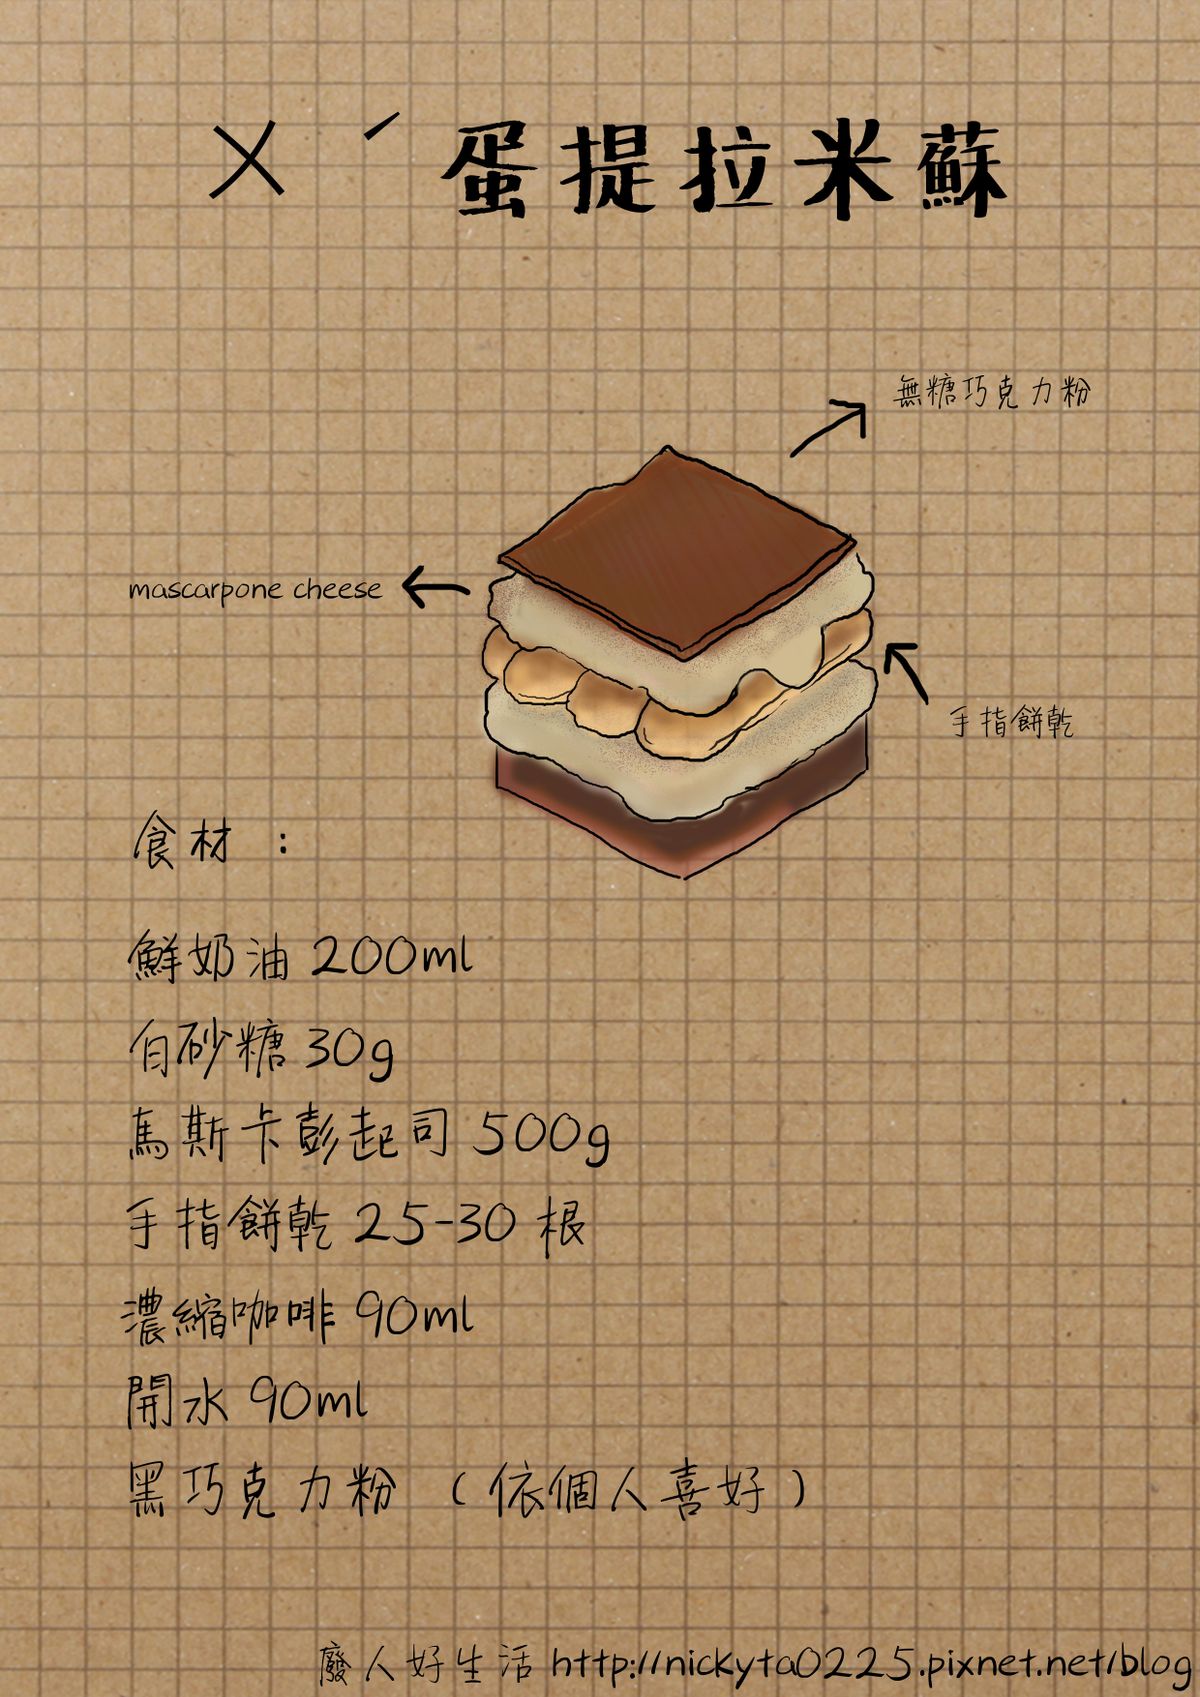 ㄨˊ 蛋提拉米蘇
無糖巧克力粉
mascarpone cheese
手指餅乾
食材：
鮮奶油 200ml
白砂糖 30g
馬斯卡彭起司 500g
手指餅乾 25-30 根
濃縮咖啡 90ml
開水 90ml
黑巧克力粉 （依個人喜好）
廢人好生活 http://nickyta0225.pixnet.net/blog